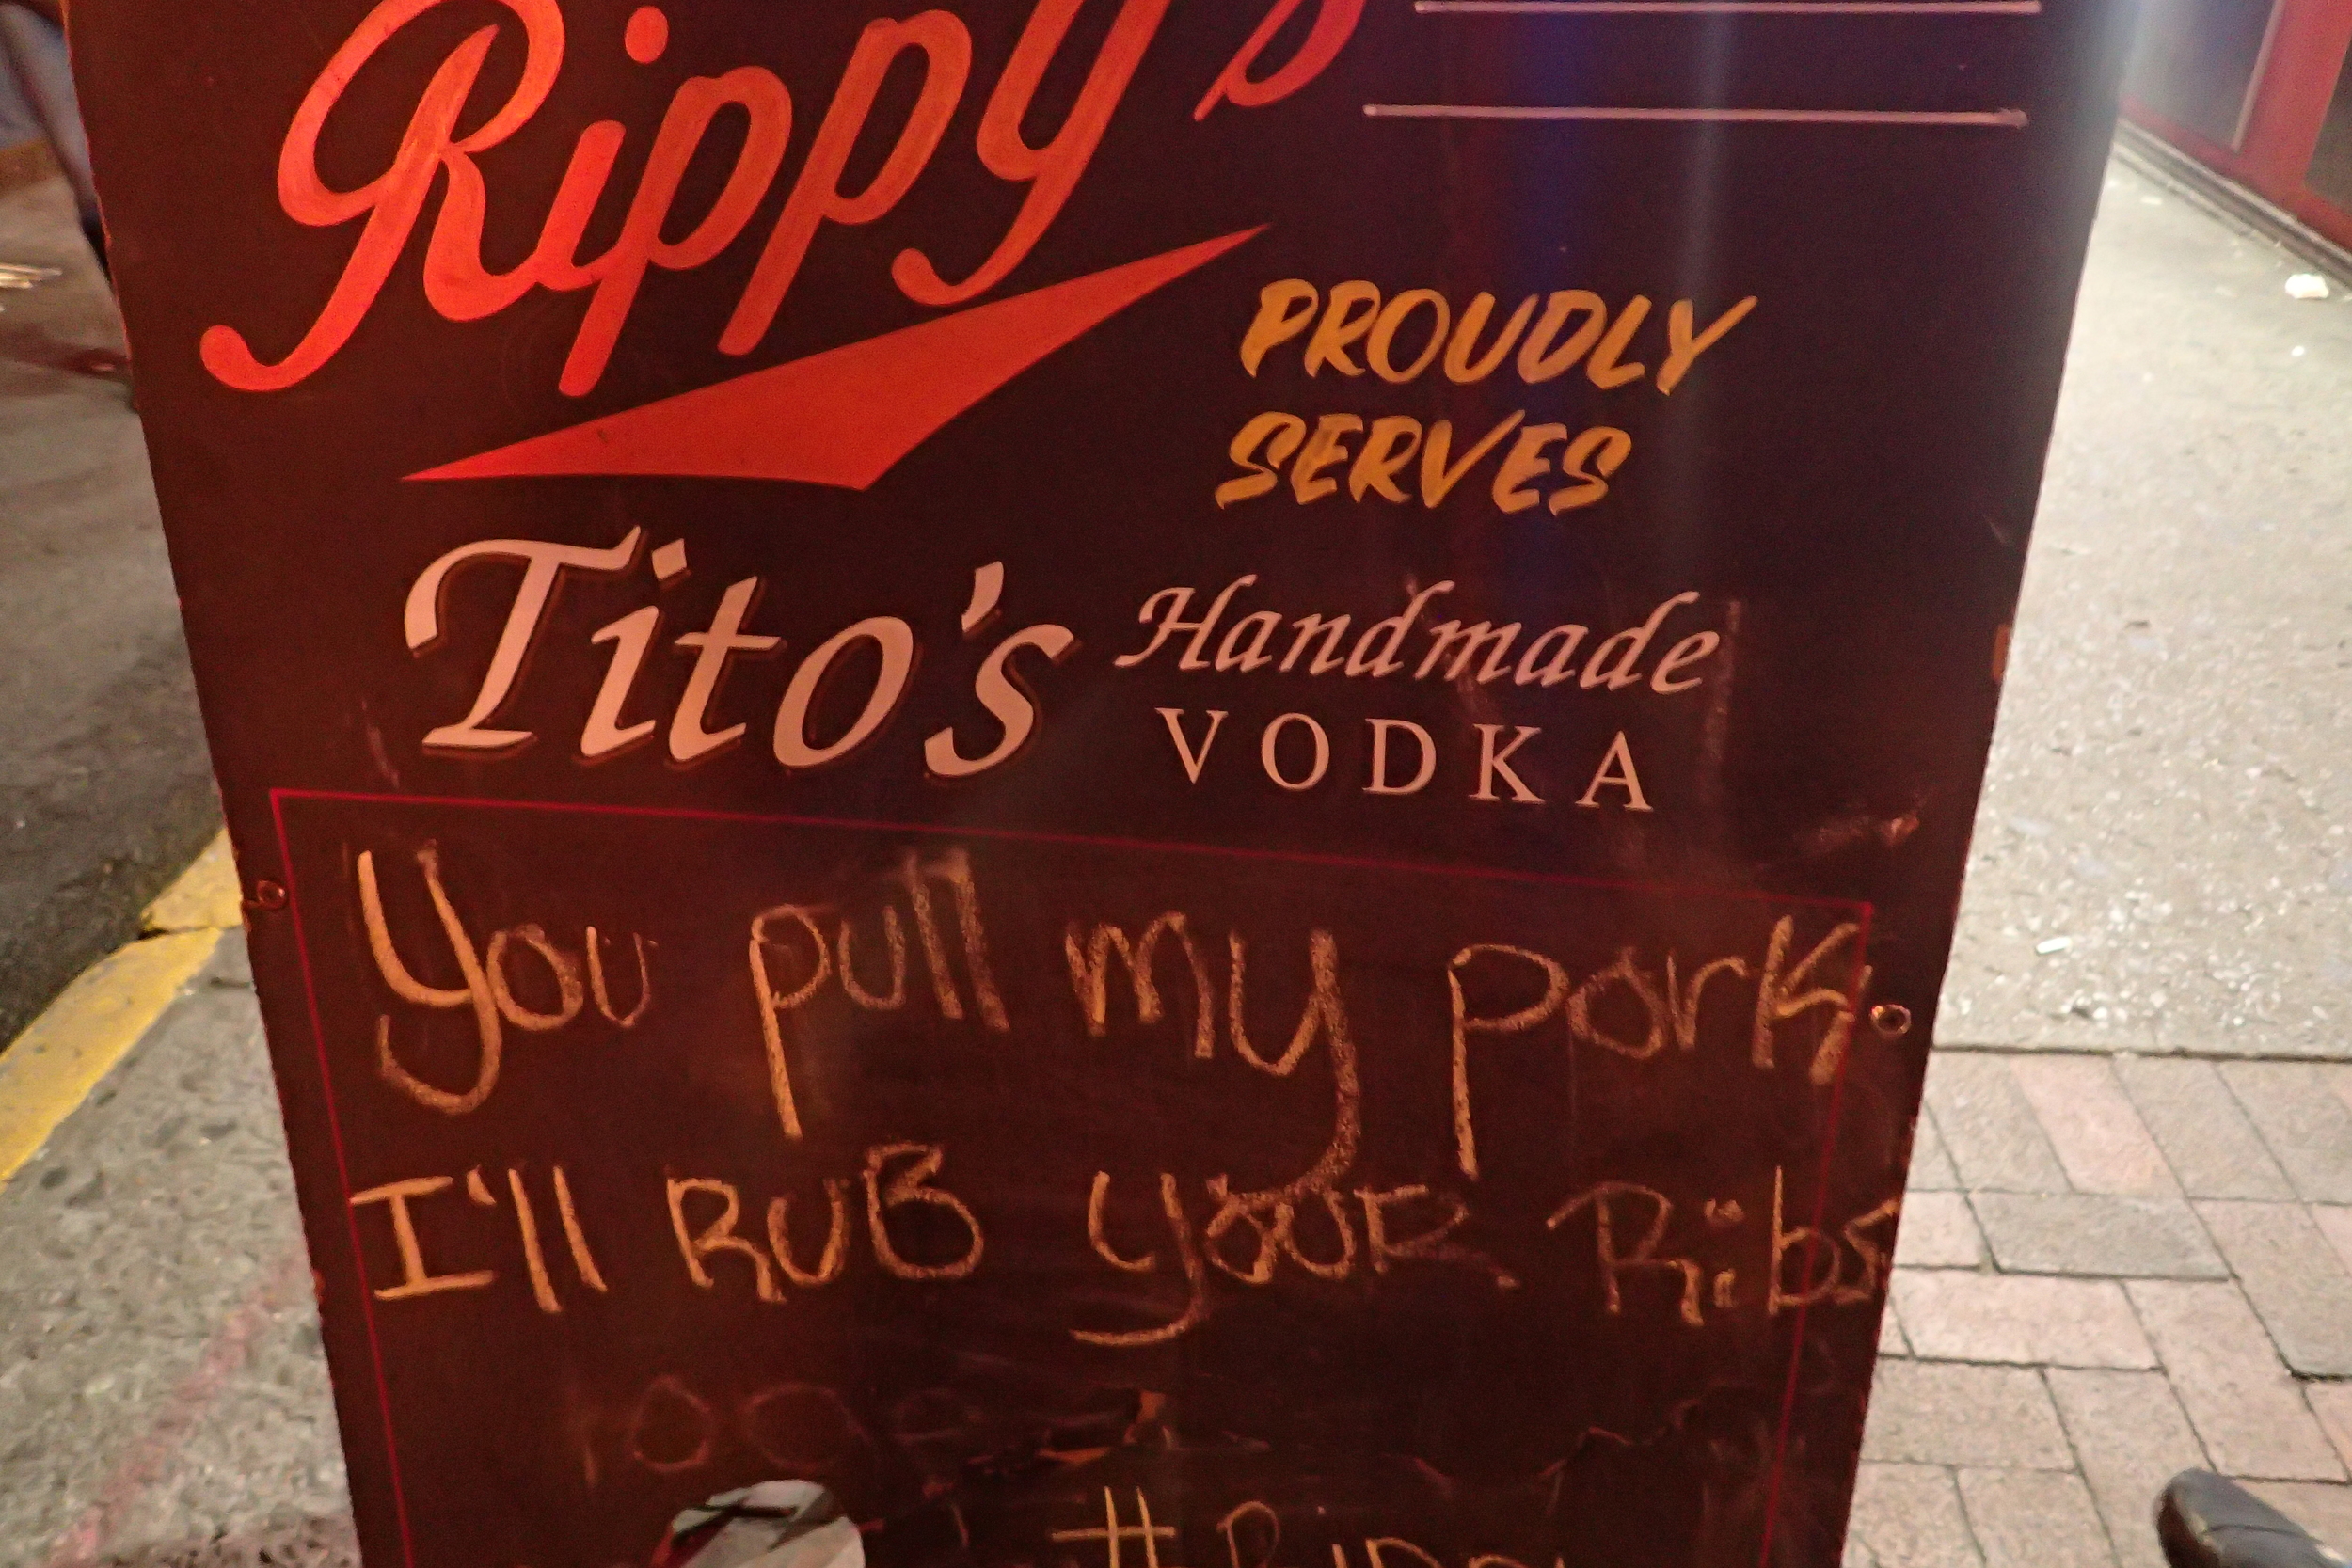 Rippy's
PROUDLY
SERVES
Tito's Handmade
VODKA
You pull my pork
I'll RUB youR Ribs